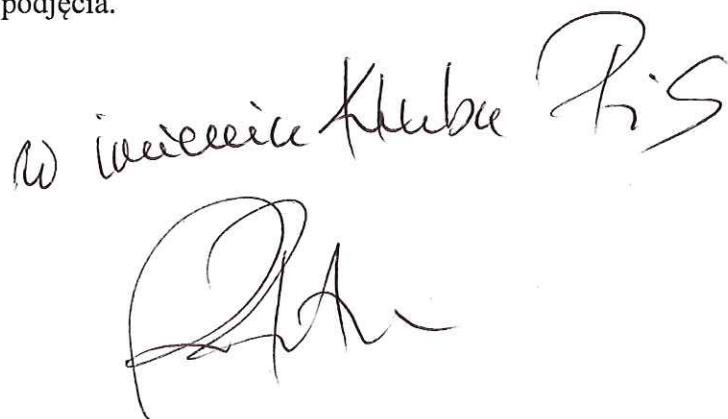 podjęcia.
w imieniu Klubu PiS